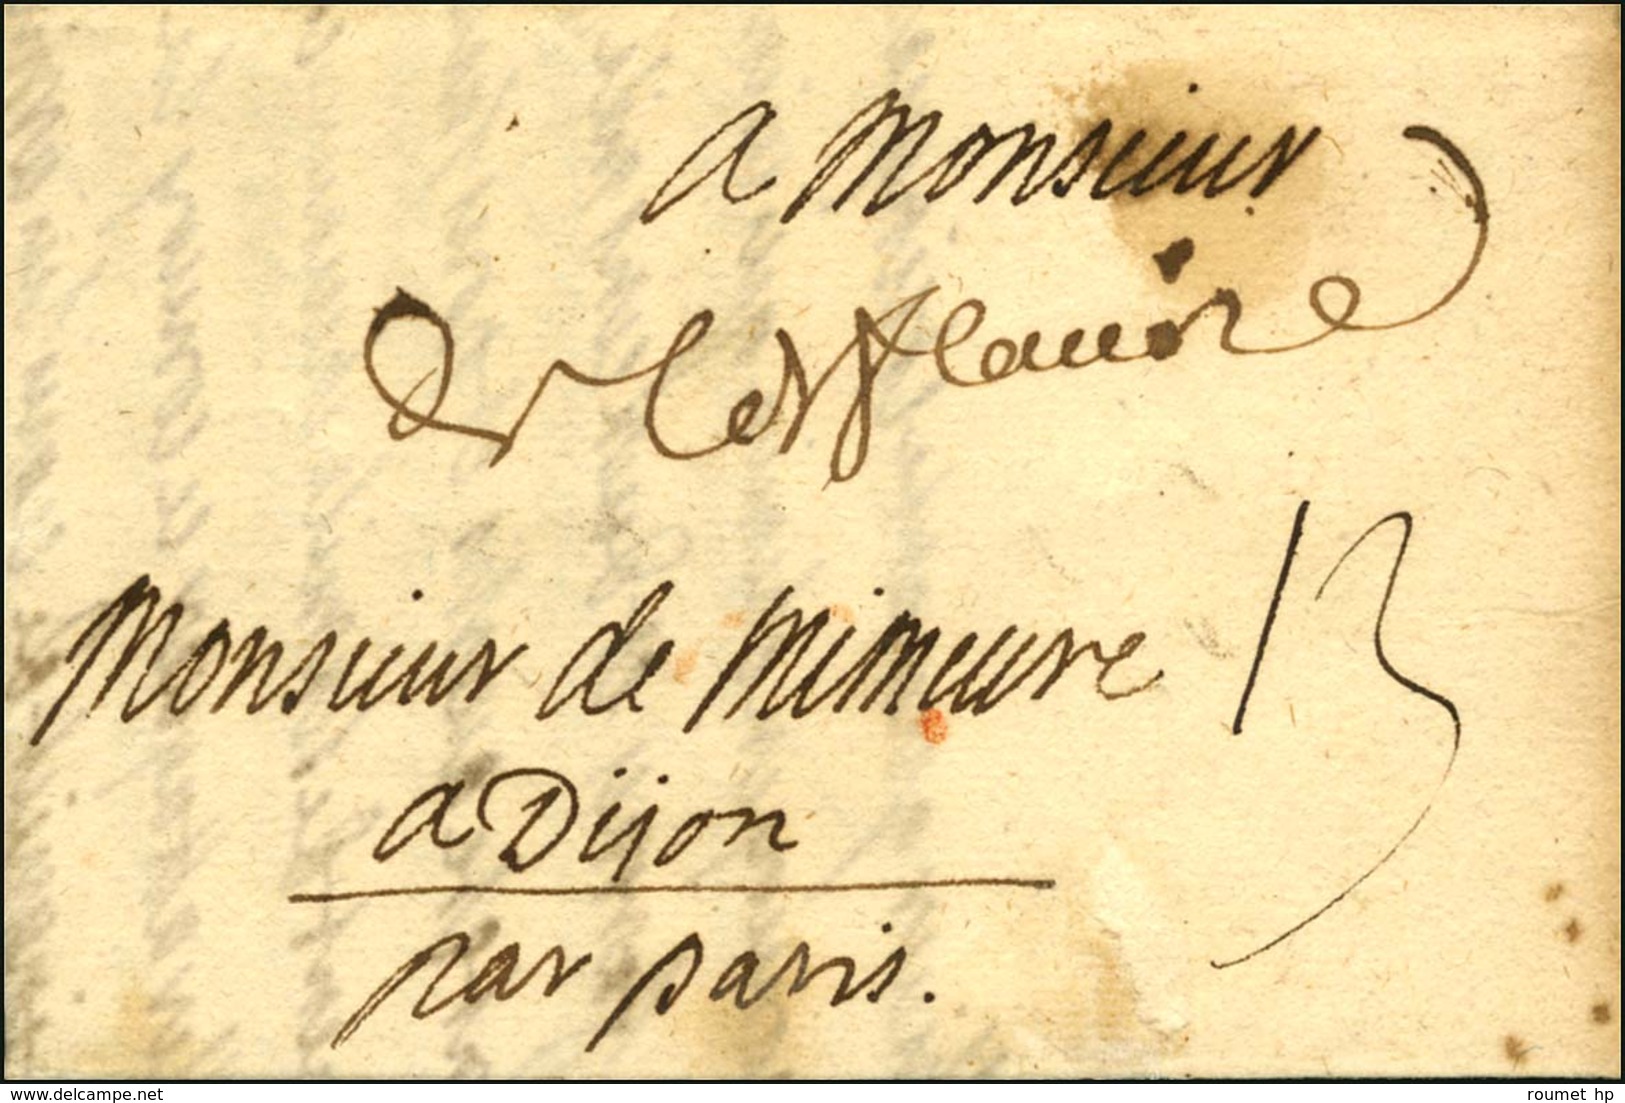 a Monsieur
de Lesflainne
Monsieur de Mimeure 13
a Dijon
par paris.
www.delcampe.net
roumet hp